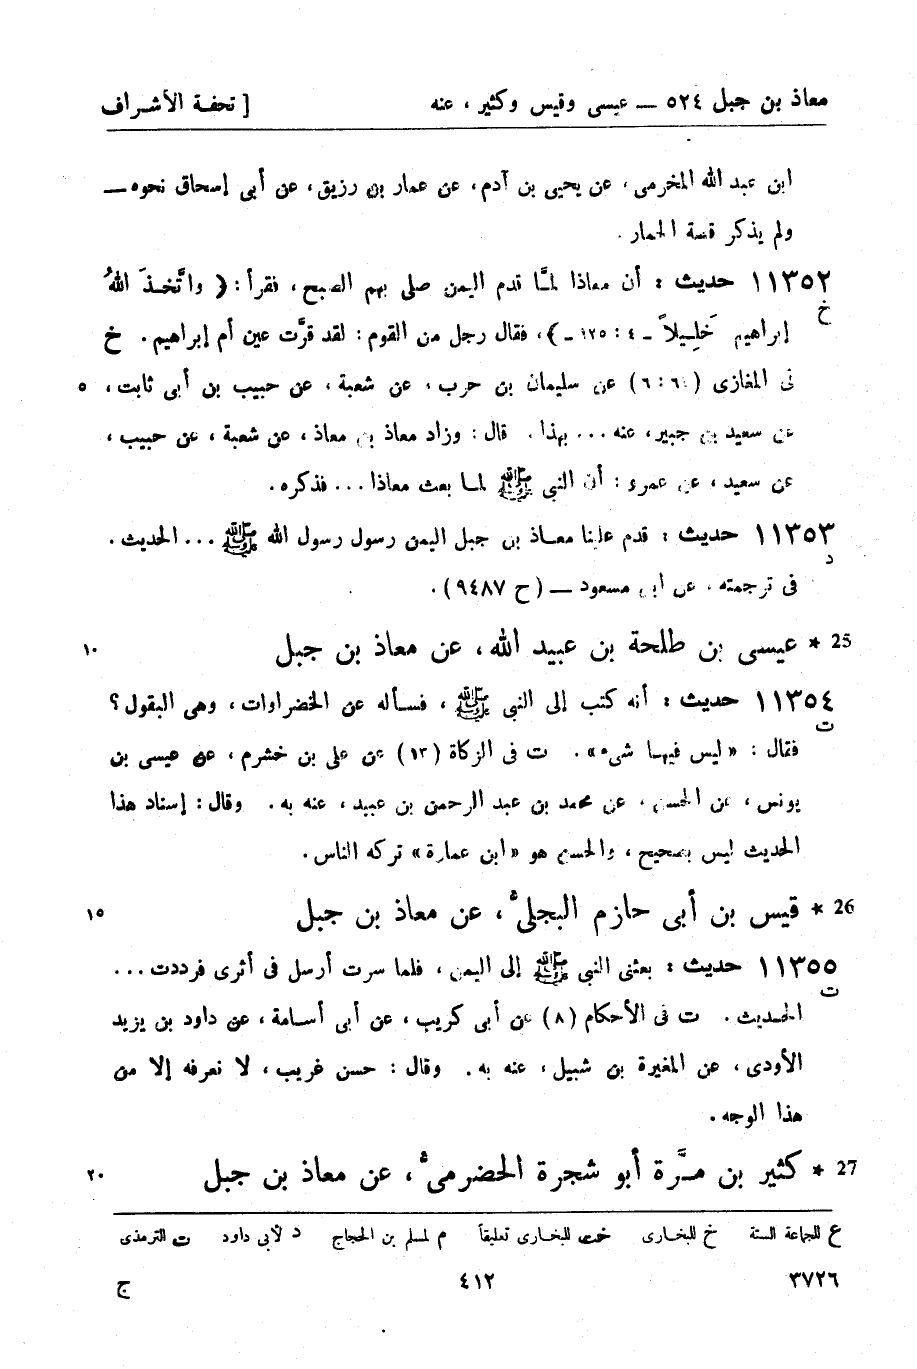 معاذ بن جبل ٥٢٤ — عيسى وقيس وكثير ، عنه [ تحفة الأشراف
ابن عبد الله المخرمى ، عن يحيى بن آدم ، عن عمار بن رزيق ، عن أبى إسحاق نحوه —
ولم يذكر قصة الحمار .
١١٣٥٢ حديث : أن معاذا لمَّا قدم اليمن صلى بهم الصبح ، فقرأ : ﴿ واتَّخذَ اللهُ
خ
إبراهيم خَلِيلاً ـ ٤ : ١٢٥ ـ ﴾، فقال رجل من القوم : لقد قرَّت عين أم إبراهيم . خ
فى المغازى (٦١ : ٦) عن سليمان بن حرب ، عن شعبة ، عن حبيب بن أبى ثابت ، ٥
عن سعيد بن جبير ، عنه ... بهذا . قال : وزاد معاذ بن معاذ ، عن شعبة ، عن حبيب ،
عن سعيد ، عن عمرو : أن النبى ﷺ لما بعث معاذا ... فذكره .
١١٣٥٣ حديث : قدم علينا معاذ بن جبل اليمن رسول رسول الله ﷺ ... الحديث .
د
فى ترجمته ، عن ابن مسعود — (ح ٩٤٨٧) .
25 * عيسى بن طلحة بن عبيد الله ، عن معاذ بن جبل ١٠
١١٣٥٤ حديث : أنه كتب إلى النبى ﷺ ، فسأله عن الخضراوات ، وهى البقول ؟
ت
فقال : « ليس فيها شىء » . ت فى الزكاة (١٣) عن على بن خشرم ، عن عيسى بن
يونس ، عن الحسن ، عن محمد بن عبد الرحمن بن عبيد ، عنه به . وقال : إسناد هذا
الحديث ليس بصحيح ، والحسن هو « ابن عمارة » تركه الناس .
26 * قيس بن أبى حازم البجلى ، عن معاذ بن جبل ١٥
١١٣٥٥ حديث : بعثنى النبى ﷺ إلى اليمن ، فلما سرت أرسل فى أثرى فرددت ...
ت
الحديث . ت فى الأحكام (٨) عن أبى كريب ، عن أبى أسامة ، عن داود بن يزيد
الأودى ، عن المغيرة بن شبيل ، عنه به . وقال : حسن غريب ، لا نعرفه إلا من
هذا الوجه .
27 * كثير بن مرَّة أبو شجرة الحضرمى ، عن معاذ بن جبل ٢٠
ع للجماعة الستة خ للبخارى خت للبخارى تعليقاً م لمسلم بن الحجاج د لأبى داود ت للترمذى
٣٧٢٦ ٤١٢ ج